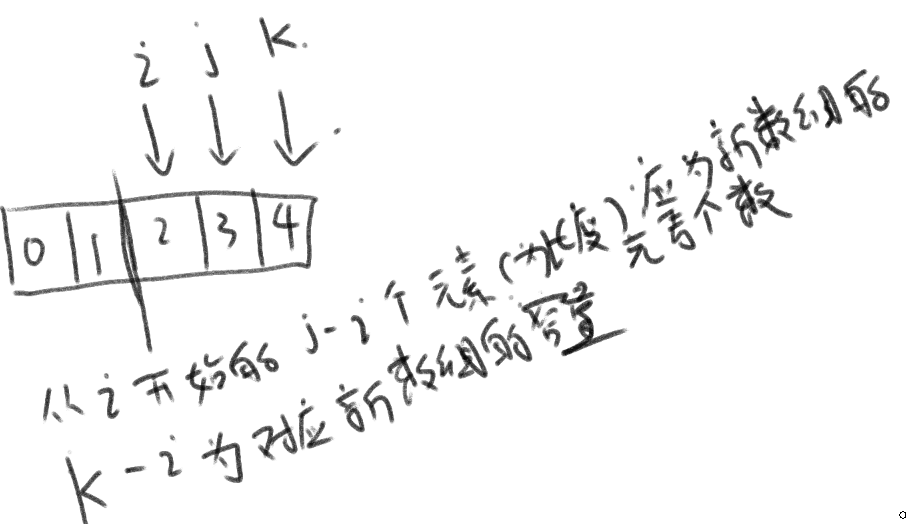 i j k
0 1 2 3 4
从i开始的 j-i个元素(为长度)应为新数组的
元素个数
k-i为对应新数组的容量